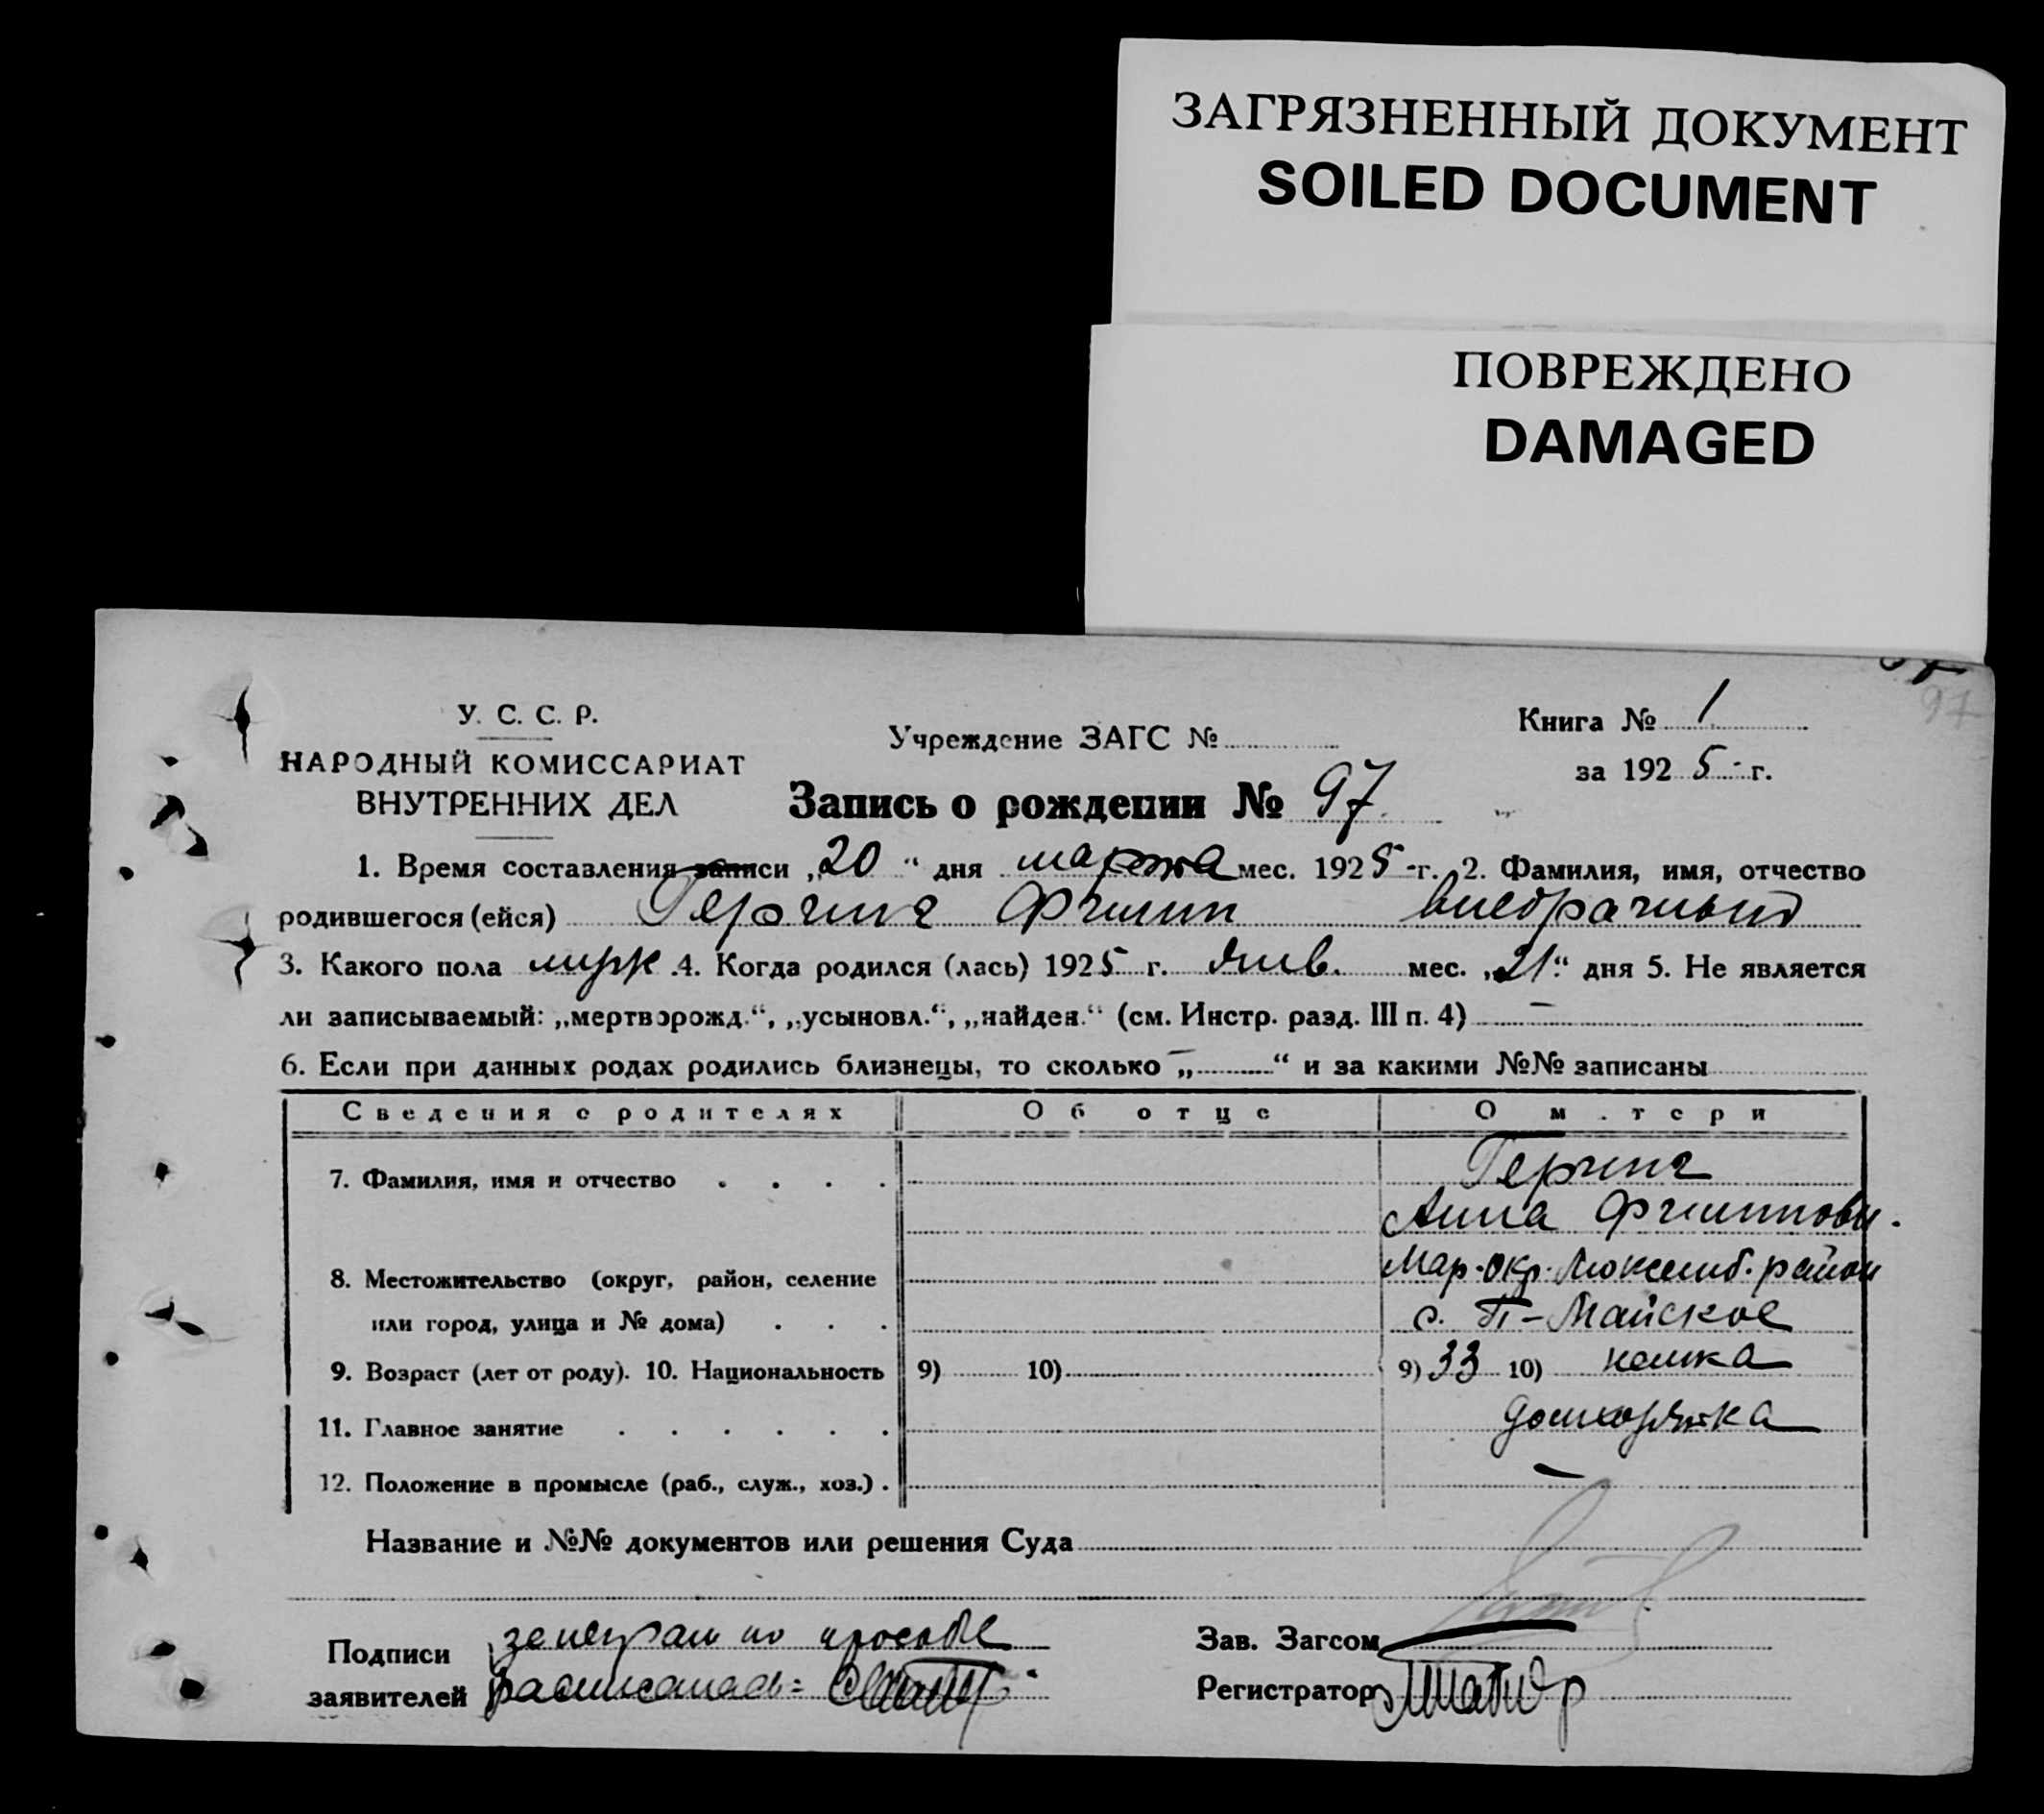 ЗАГРЯЗНЕННЫЙ ДОКУМЕНТ
SOILED DOCUMENT
ПОВРЕЖДЕНО
DAMAGED
97
У. С. С. Р.
НАРОДНЫЙ КОМИССАРИАТ
ВНУТРЕННИХ ДЕЛ
Учреждение ЗАГС №
Книга № 1
за 1925 г.
Запись о рождении № 97.
1. Время составления записи „20“ дня марта мес. 1925 г. 2. Фамилия, имя, отчество
родившегося (ейся) Геринг Филип внебрачный
3. Какого пола муж 4. Когда родился (лась) 1925 г. Янв. мес. „21“ дня 5. Не является
ли записываемый: „мертворожд.“, „усыновл.“, „найден.“ (см. Инстр. разд. III п. 4) —
6. Если при данных родах родились близнецы, то сколько „—“ и за какими №№ записаны
Сведения о родителях Об отце О матери
7. Фамилия, имя и отчество Геринг
Анна Филипповн.
8. Местожительство (округ, район, селение Мар. окр. Люксемб. район
или город, улица и № дома) с. П-Майское
9. Возраст (лет от роду). 10. Национальность 9) 10) 9) 33 10) немка
11. Главное занятие домхозяйка
12. Положение в промысле (раб., служ., хоз.) —
Название и №№ документов или решения Суда
Подписи неграм по просьбе
заявителей расписалась:
Зав. Загсом
Регистратор